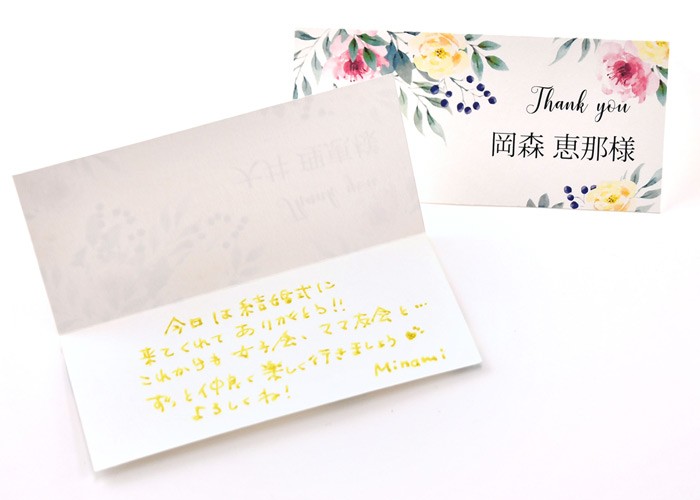 Thank you
岡森 恵那様
今日は結婚式に
来てくれてありがとう!!
これからも女子会、ママ友会と…
ずっと仲良く楽しく行きましょう
よろしくね!
Minami